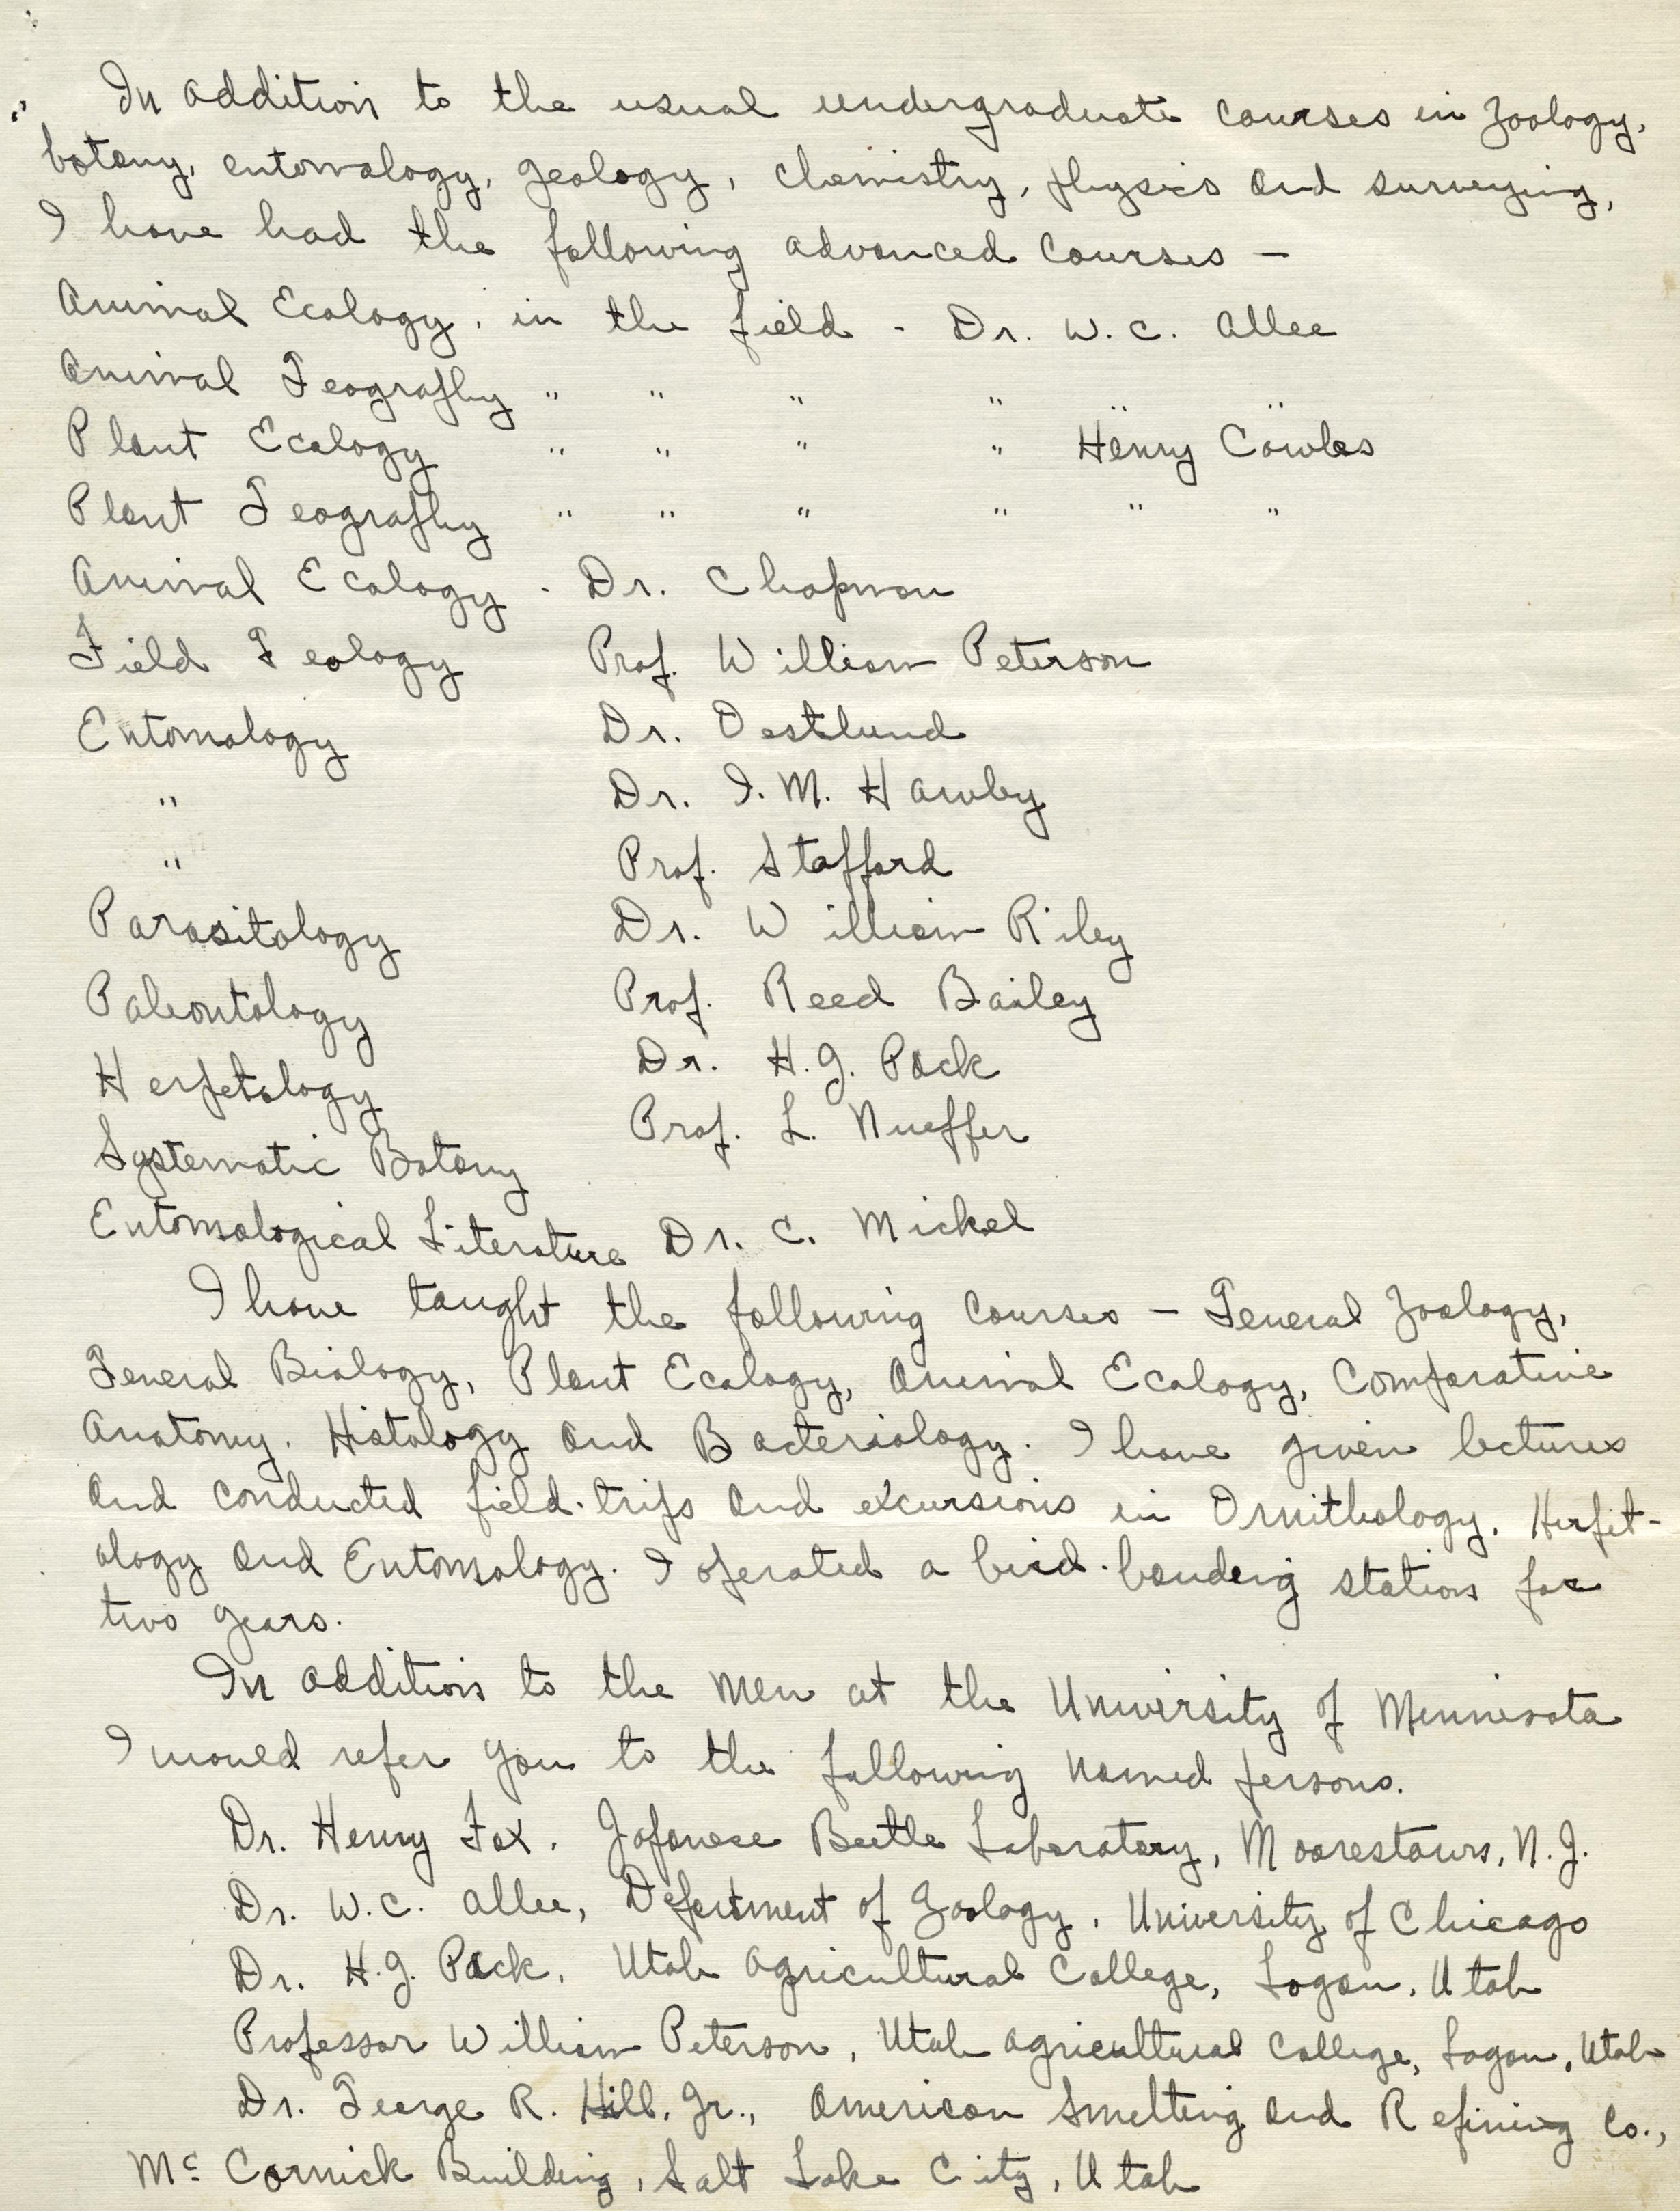 In addition to the usual undergraduate courses in Zoology,
botany, entomology, geology, chemistry, physics and surveying,
I have had the following advanced courses —
Animal Ecology, in the field - Dr. W. C. Allee
Animal Geography " " " " " "
Plant Ecology " " " " Henry Cowles
Plant Geography " " " " " "
Animal Ecology - Dr. Chapman
Field Geology Prof. William Peterson
Entomology Dr. Oestlund
" Dr. I. M. Hawley
" Prof. Stafford
Parasitology Dr. William Riley
Paleontology Prof. Reed Bailey
Herpetology Dr. H. J. Pack
Systematic Botany Prof. L. Nueffer
Entomological Literature Dr. C. Mickel
I have taught the following courses — General Zoology,
General Biology, Plant Ecology, Animal Ecology, Comparative
Anatomy, Histology and Bacteriology. I have given lectures
and conducted field-trips and excursions in Ornithology, Herpet-
ology and Entomology. I operated a bird-banding station for
two years.
In addition to the men at the University of Minnesota
I would refer you to the following named persons.
Dr. Henry Fox, Japanese Beetle Laboratory, Moorestown, N. J.
Dr. W. C. Allee, Department of Zoology, University of Chicago
Dr. H. J. Pack, Utah Agricultural College, Logan, Utah
Professor William Peterson, Utah Agricultural College, Logan, Utah
Dr. George R. Hill, Jr., American Smelting and Refining Co.,
McCornick Building, Salt Lake City, Utah